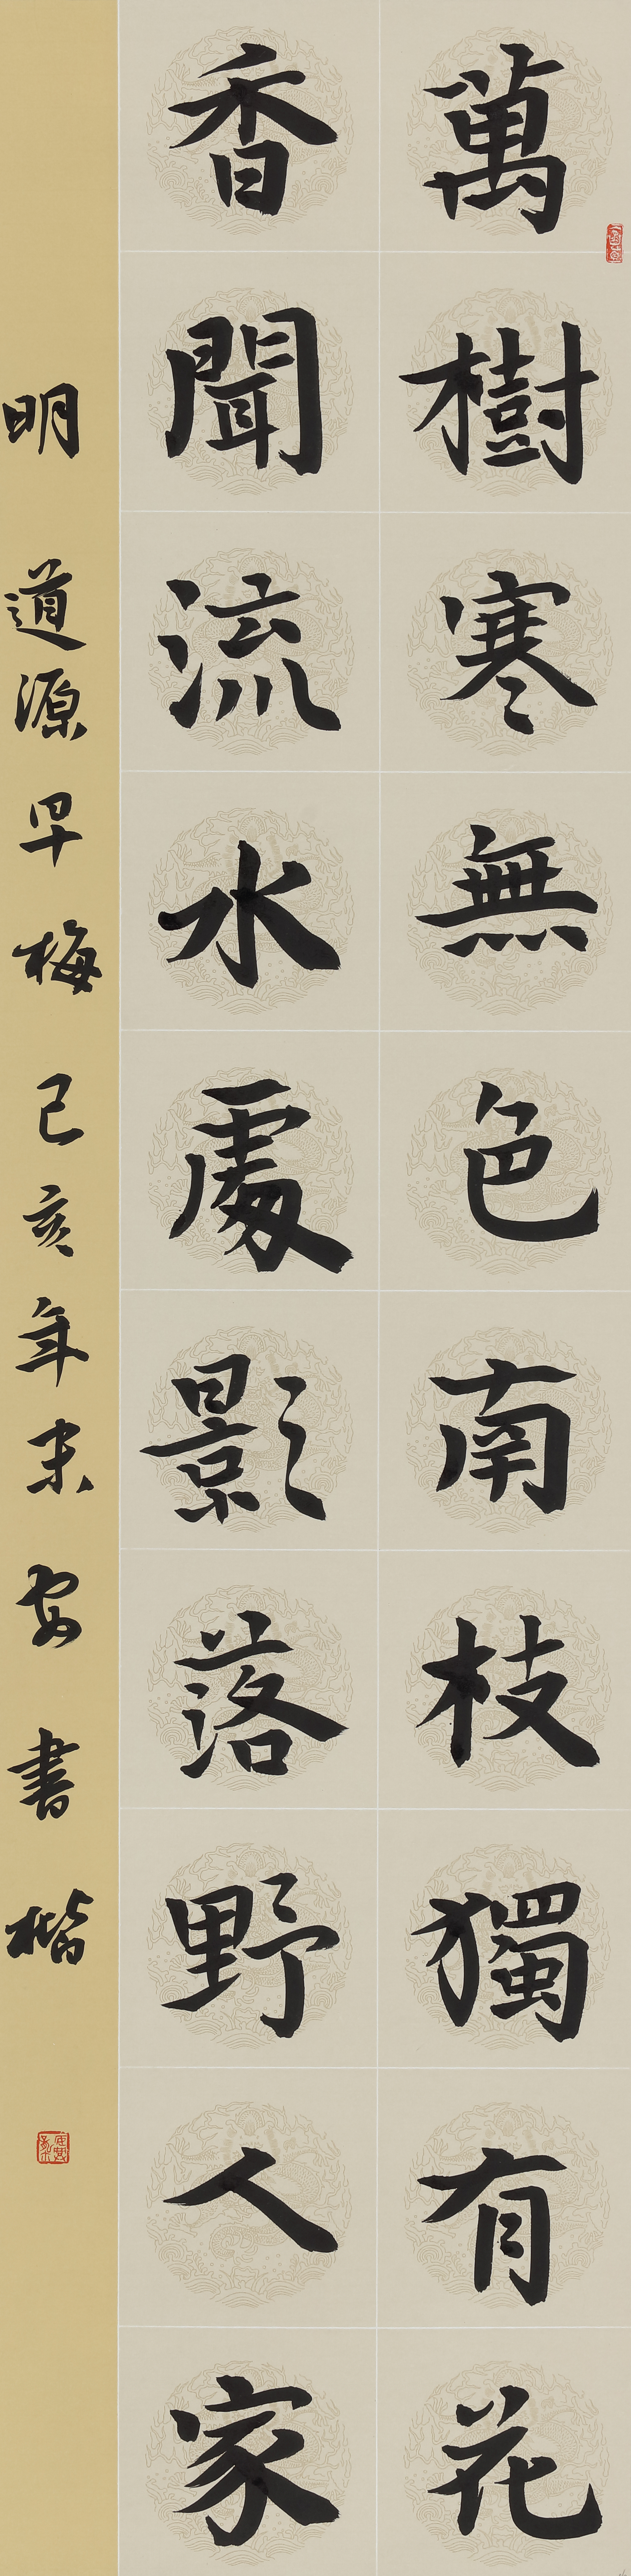 萬樹寒無色南枝獨有花
香聞流水處影落野人家
明 道源早梅 己亥年末 安書楷